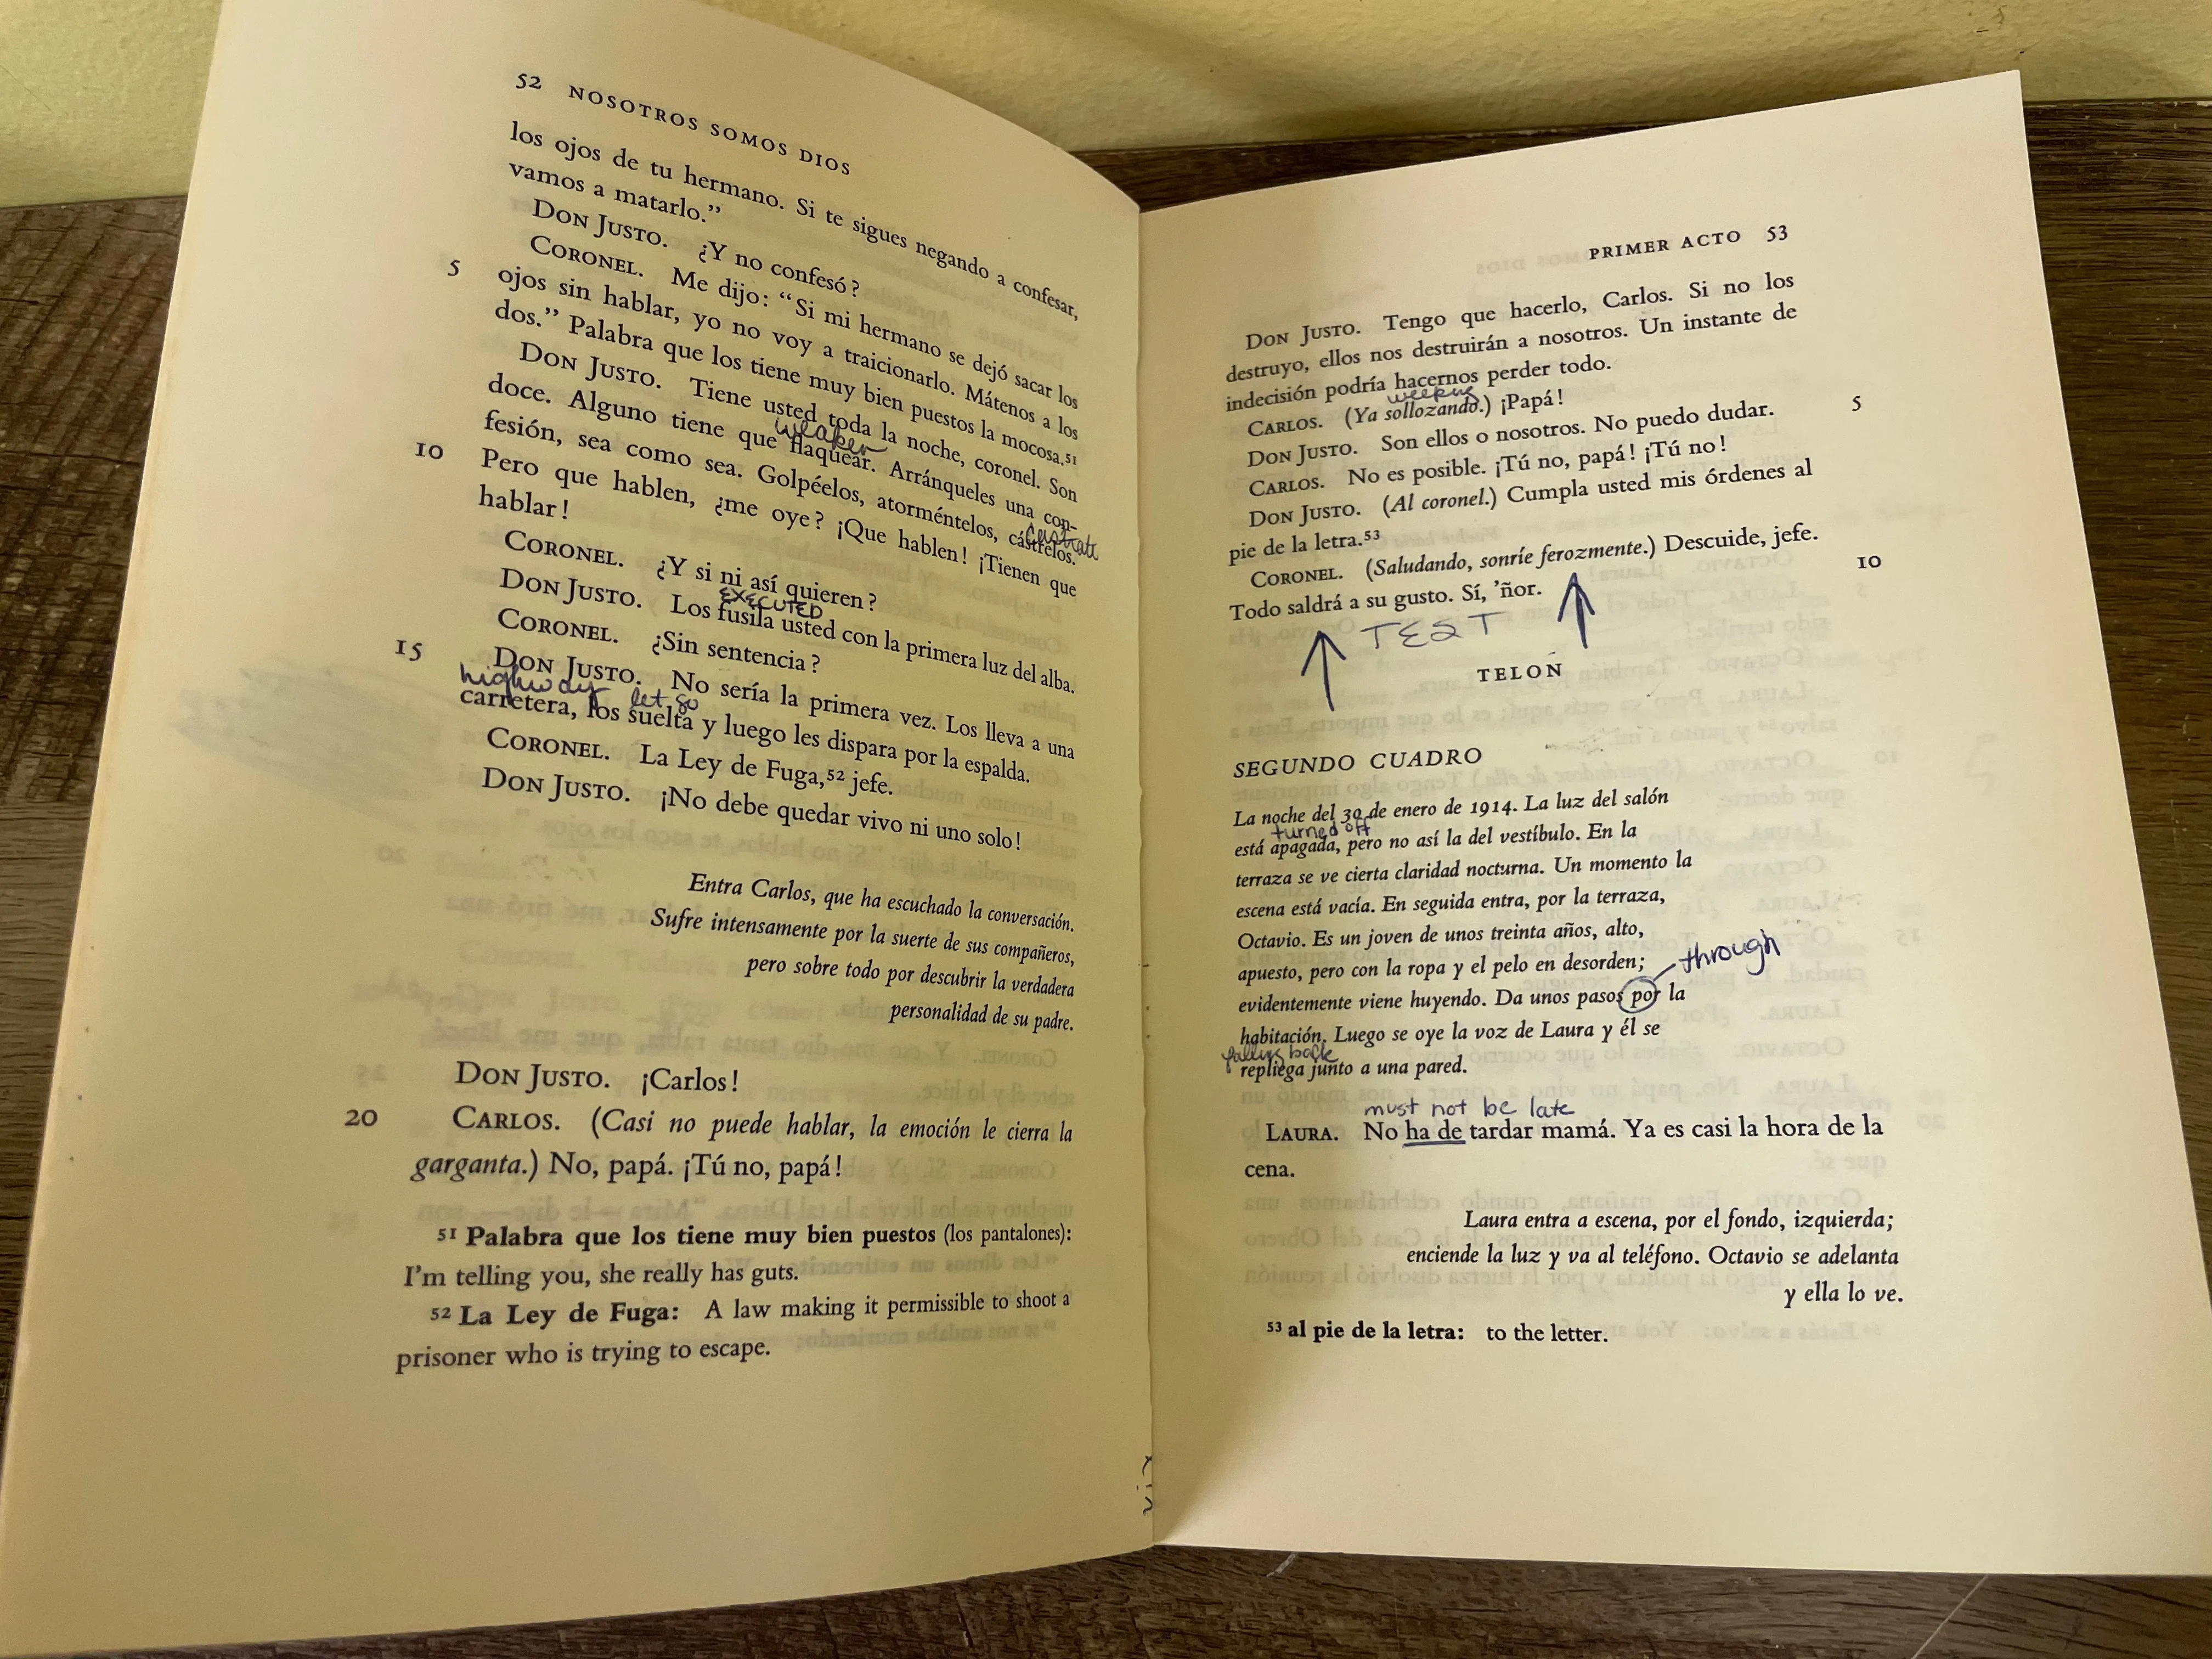 52 NOSOTROS SOMOS DIOS
los ojos de tu hermano. Si te sigues negando a confesar,
vamos a matarlo.”
DON JUSTO. ¿Y no confesó?
CORONEL. Me dijo: “Si mi hermano se dejó sacar los
5 ojos sin hablar, yo no voy a traicionarlo. Mátenos a los
dos.” Palabra que los tiene muy bien puestos la mocosa.51
DON JUSTO. Tiene usted toda la noche, coronel. Son
weaken
doce. Alguno tiene que flaquear. Arránqueles una con-
fesión, sea como sea. Golpéelos, atorméntelos, cástrelos.
castrate
10 Pero que hablen, ¿me oye? ¡Que hablen! ¡Tienen que
hablar!
CORONEL. ¿Y si ni así quieren?
EXECUTED
DON JUSTO. Los fusila usted con la primera luz del alba.
CORONEL. ¿Sin sentencia?
15 DON JUSTO. No sería la primera vez. Los lleva a una
highway let go
carretera, los suelta y luego les dispara por la espalda.
CORONEL. La Ley de Fuga,52 jefe.
DON JUSTO. ¡No debe quedar vivo ni uno solo!
Entra Carlos, que ha escuchado la conversación.
Sufre intensamente por la suerte de sus compañeros,
pero sobre todo por descubrir la verdadera
personalidad de su padre.
DON JUSTO. ¡Carlos!
20 CARLOS. (Casi no puede hablar, la emoción le cierra la
garganta.) No, papá. ¡Tú no, papá!
51 Palabra que los tiene muy bien puestos (los pantalones):
I’m telling you, she really has guts.
52 La Ley de Fuga: A law making it permissible to shoot a
prisoner who is trying to escape.
PRIMER ACTO 53
DON JUSTO. Tengo que hacerlo, Carlos. Si no los
destruyo, ellos nos destruirán a nosotros. Un instante de
indecisión podría hacernos perder todo.
weeping
CARLOS. (Ya sollozando.) ¡Papá!
DON JUSTO. Son ellos o nosotros. No puedo dudar. 5
CARLOS. No es posible. ¡Tú no, papá! ¡Tú no!
DON JUSTO. (Al coronel.) Cumpla usted mis órdenes al
pie de la letra.53
CORONEL. (Saludando, sonríe ferozmente.) Descuide, jefe.
Todo saldrá a su gusto. Sí, ’ñor. 10
TEST
TELON
SEGUNDO CUADRO
La noche del 30 de enero de 1914. La luz del salón
turned off
está apagada, pero no así la del vestíbulo. En la
terraza se ve cierta claridad nocturna. Un momento la
escena está vacía. En seguida entra, por la terraza,
Octavio. Es un joven de unos treinta años, alto,
apuesto, pero con la ropa y el pelo en desorden;
through
evidentemente viene huyendo. Da unos pasos por la
habitación. Luego se oye la voz de Laura y él se
falling back
repliega junto a una pared.
must not be late
LAURA. No ha de tardar mamá. Ya es casi la hora de la
cena.
Laura entra a escena, por el fondo, izquierda;
enciende la luz y va al teléfono. Octavio se adelanta
y ella lo ve.
53 al pie de la letra: to the letter.